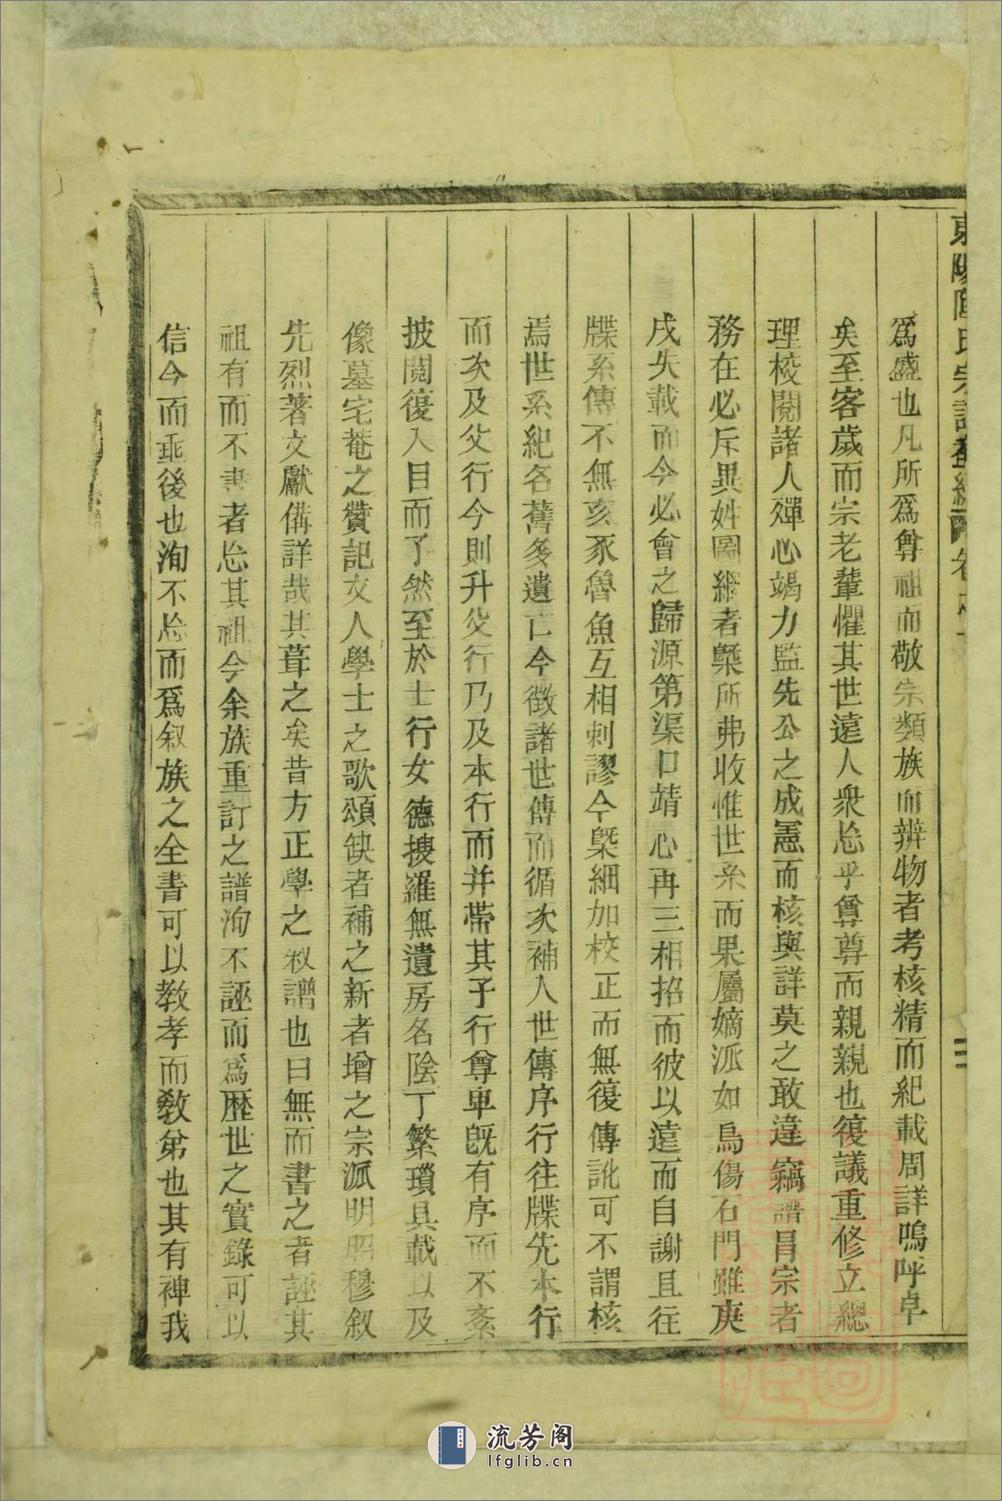 爲盛也凡所爲尊祖而敬宗類族而辨物者考核精而紀載周詳嗚呼卓
矣至客歲而宗老輩懼其世遠人衆忘乎尊尊而親親也復議重修立總
理校閱諸人殫心竭力監先公之成憲而核與詳莫之敢違竊譜冒宗者
務在必斥異姓圖繼者槩所弗收惟世系而果屬嫡派如烏傷石門雖庚
戌失載而今必會之歸源第渠口靖心再三相招而彼以遠而自謝且往
牒系傳不無亥豕魯魚互相刺謬今槩細加校正而無復傳訛可不謂核
焉世系紀各舊多遺亡今徵諸世傳而循次補入世傳序行往牒先本行
而次及父行今則升父行乃及本行而并帶其子行尊卑旣有序而不紊
披閱復入目而了然至於士行女德搜羅無遺房名陰丁繁瑣具載以及
像墓宅菴之贊記文人學士之歌頌缺者補之新者增之宗派明昭穆叙
先烈著文獻備詳哉其葺之矣昔方正學之叙譜也曰無而書之者誣其
祖有而不書者忘其祖今余族重訂之譜洵不誣而爲歷世之實錄可以
信今而垂後也洵不忘而爲叙族之全書可以教孝而敎弟也其有裨我
流芳阁
lfglib.cn